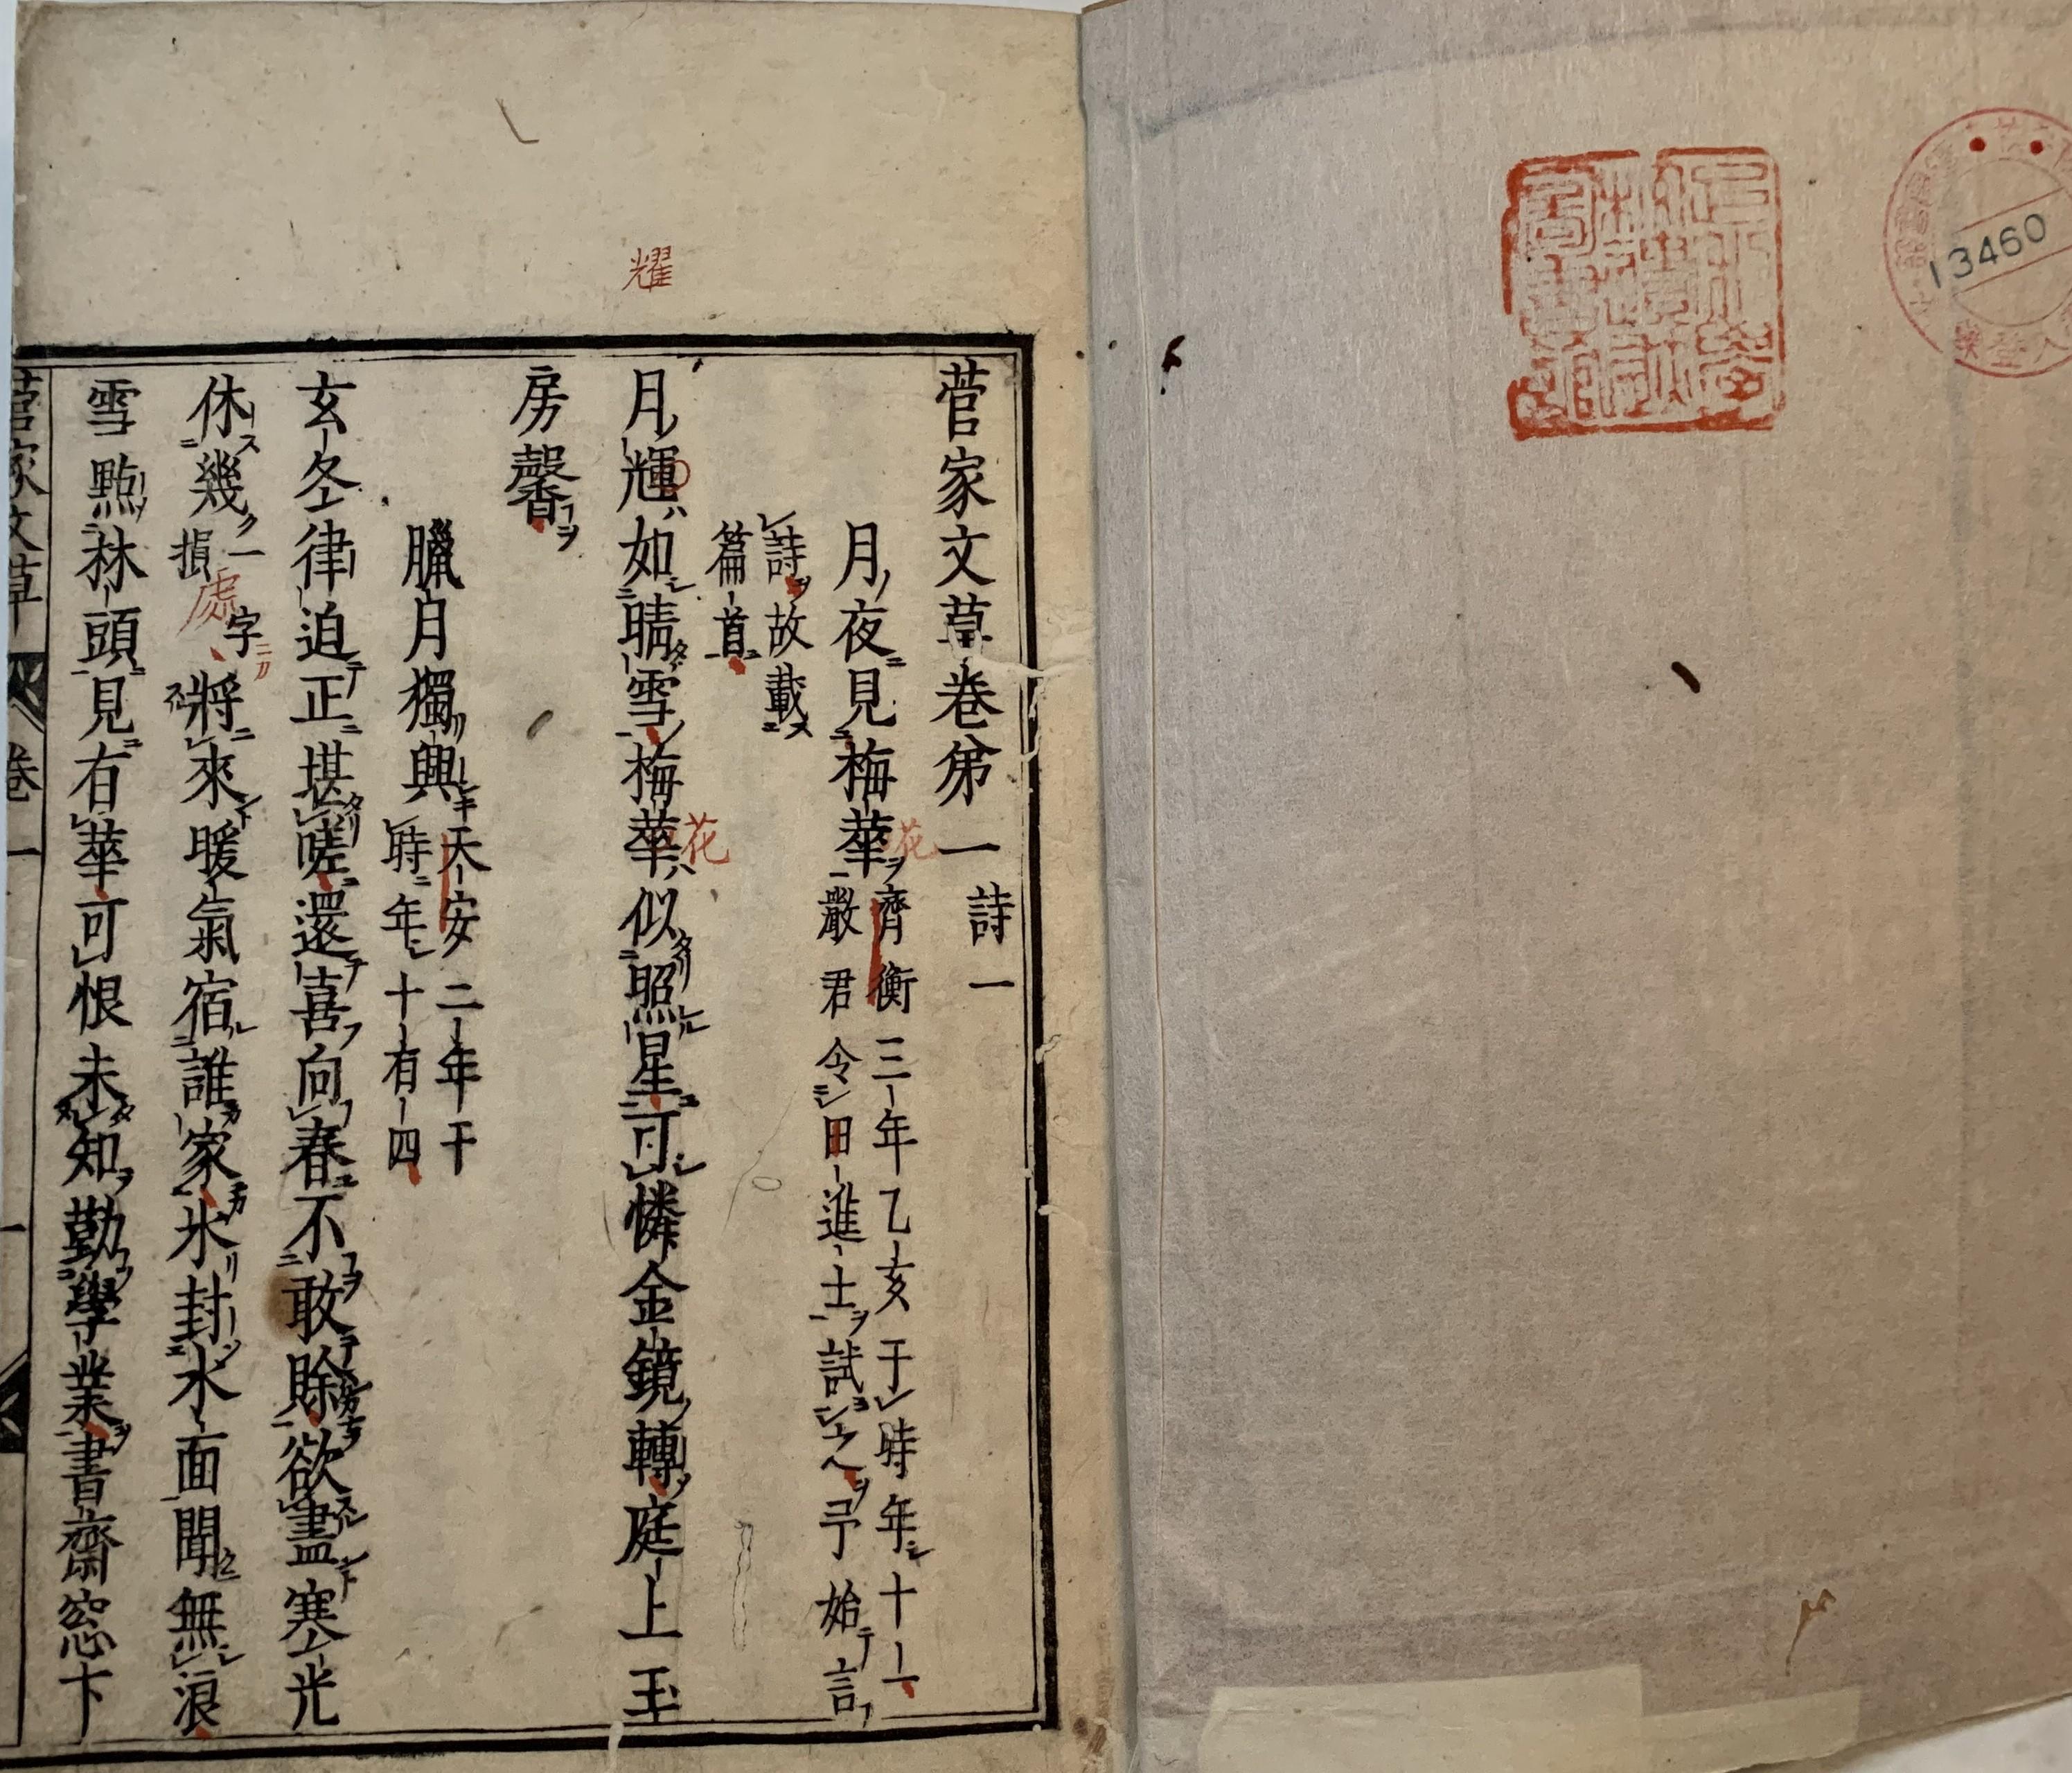 13460
耀
菅家文草卷第一 詩一
月夜見梅華 齊衡三年乙亥于時年十一
嚴君令田進士試之予始言
花
詩故載
篇首
月輝如晴雪梅華似照星可憐金鏡轉庭上玉
花
房馨
臘月獨興 天安二年干
時年十有四
玄冬律迫正堪嗟還喜向春不敢賖欲盡寒光
休幾 一字損 將來暖氣宿誰家氷封水面聞無浪
處
雪㸃林頭見有華可恨未知勤學業書齋窓下
菅家文草 卷一 一